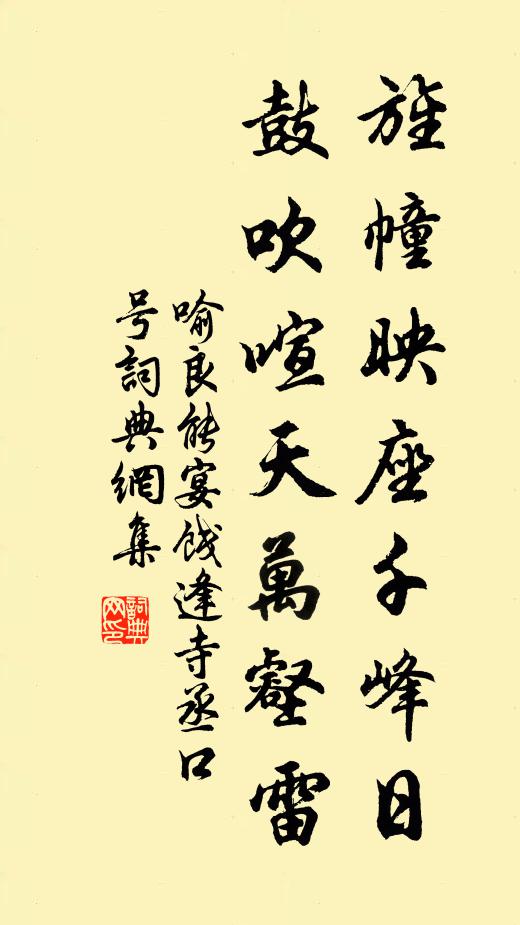 旌幢映座千峰日
鼓吹喧天萬壑雷
喻良能宴餞逢寺丞口
号詞典網集
詞典
网印